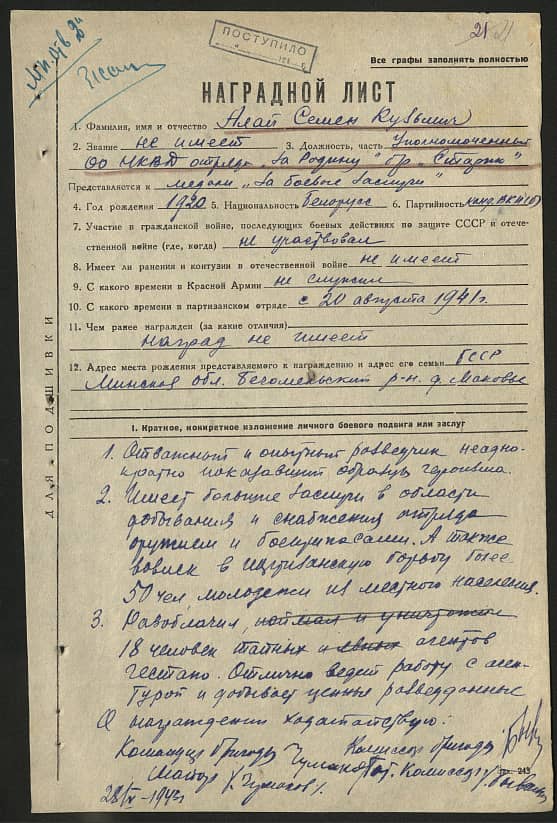 21 21
ПОСТУПИЛО
Все графы заполнять полностью
НАГРАДНОЙ ЛИСТ
1. Фамилия, имя и отчество Алай Семен Кузьмич
2. Звание не имеет 3. Должность, часть Уполномоченный
ОО НКВД отряда „За Родину" бр.
Представляется к медали „За боевые заслуги"
4. Год рождения 1920 5. Национальность Белорус 6. Партийность канд. ВКП(б)
7. Участие в гражданской войне, последующих боевых действиях по защите СССР и отече-
ственной войне (где, когда) не участвовал
8. Имеет ли ранения и контузии в отечественной войне не имеет
9. С какого времени в Красной Армии не служил
10. С какого времени в партизанском отряде с 20 августа 1941 г.
11. Чем ранее награжден (за какие отличия)
наград не имеет
12. Адрес места рождения представляемого к награждению и адрес его семьи БССР
Минская обл. Бегомельский р-н д.
ДЛЯ ПОДШИВКИ
I. Краткое, конкретное изложение личного боевого подвига или заслуг
1. Отважный и опытный разведчик неодно-
кратно показавший образцы героизма.
2. Имеет большие заслуги в области
добывания и снабжения отряда
оружием и боеприпасами. А также
вовлек в партизанскую борьбу более
50 чел молодежи из местного населения.
3. Разоблачил, поймал и уничтожил
18 человек тайных и явных агентов
гестапо. Отлично ведет работу с аген-
турой и добывает ценные разведданные
О награждении ходатайствую:
Командир бригады Комиссар бригады
Майор Комиссар
1943г
243